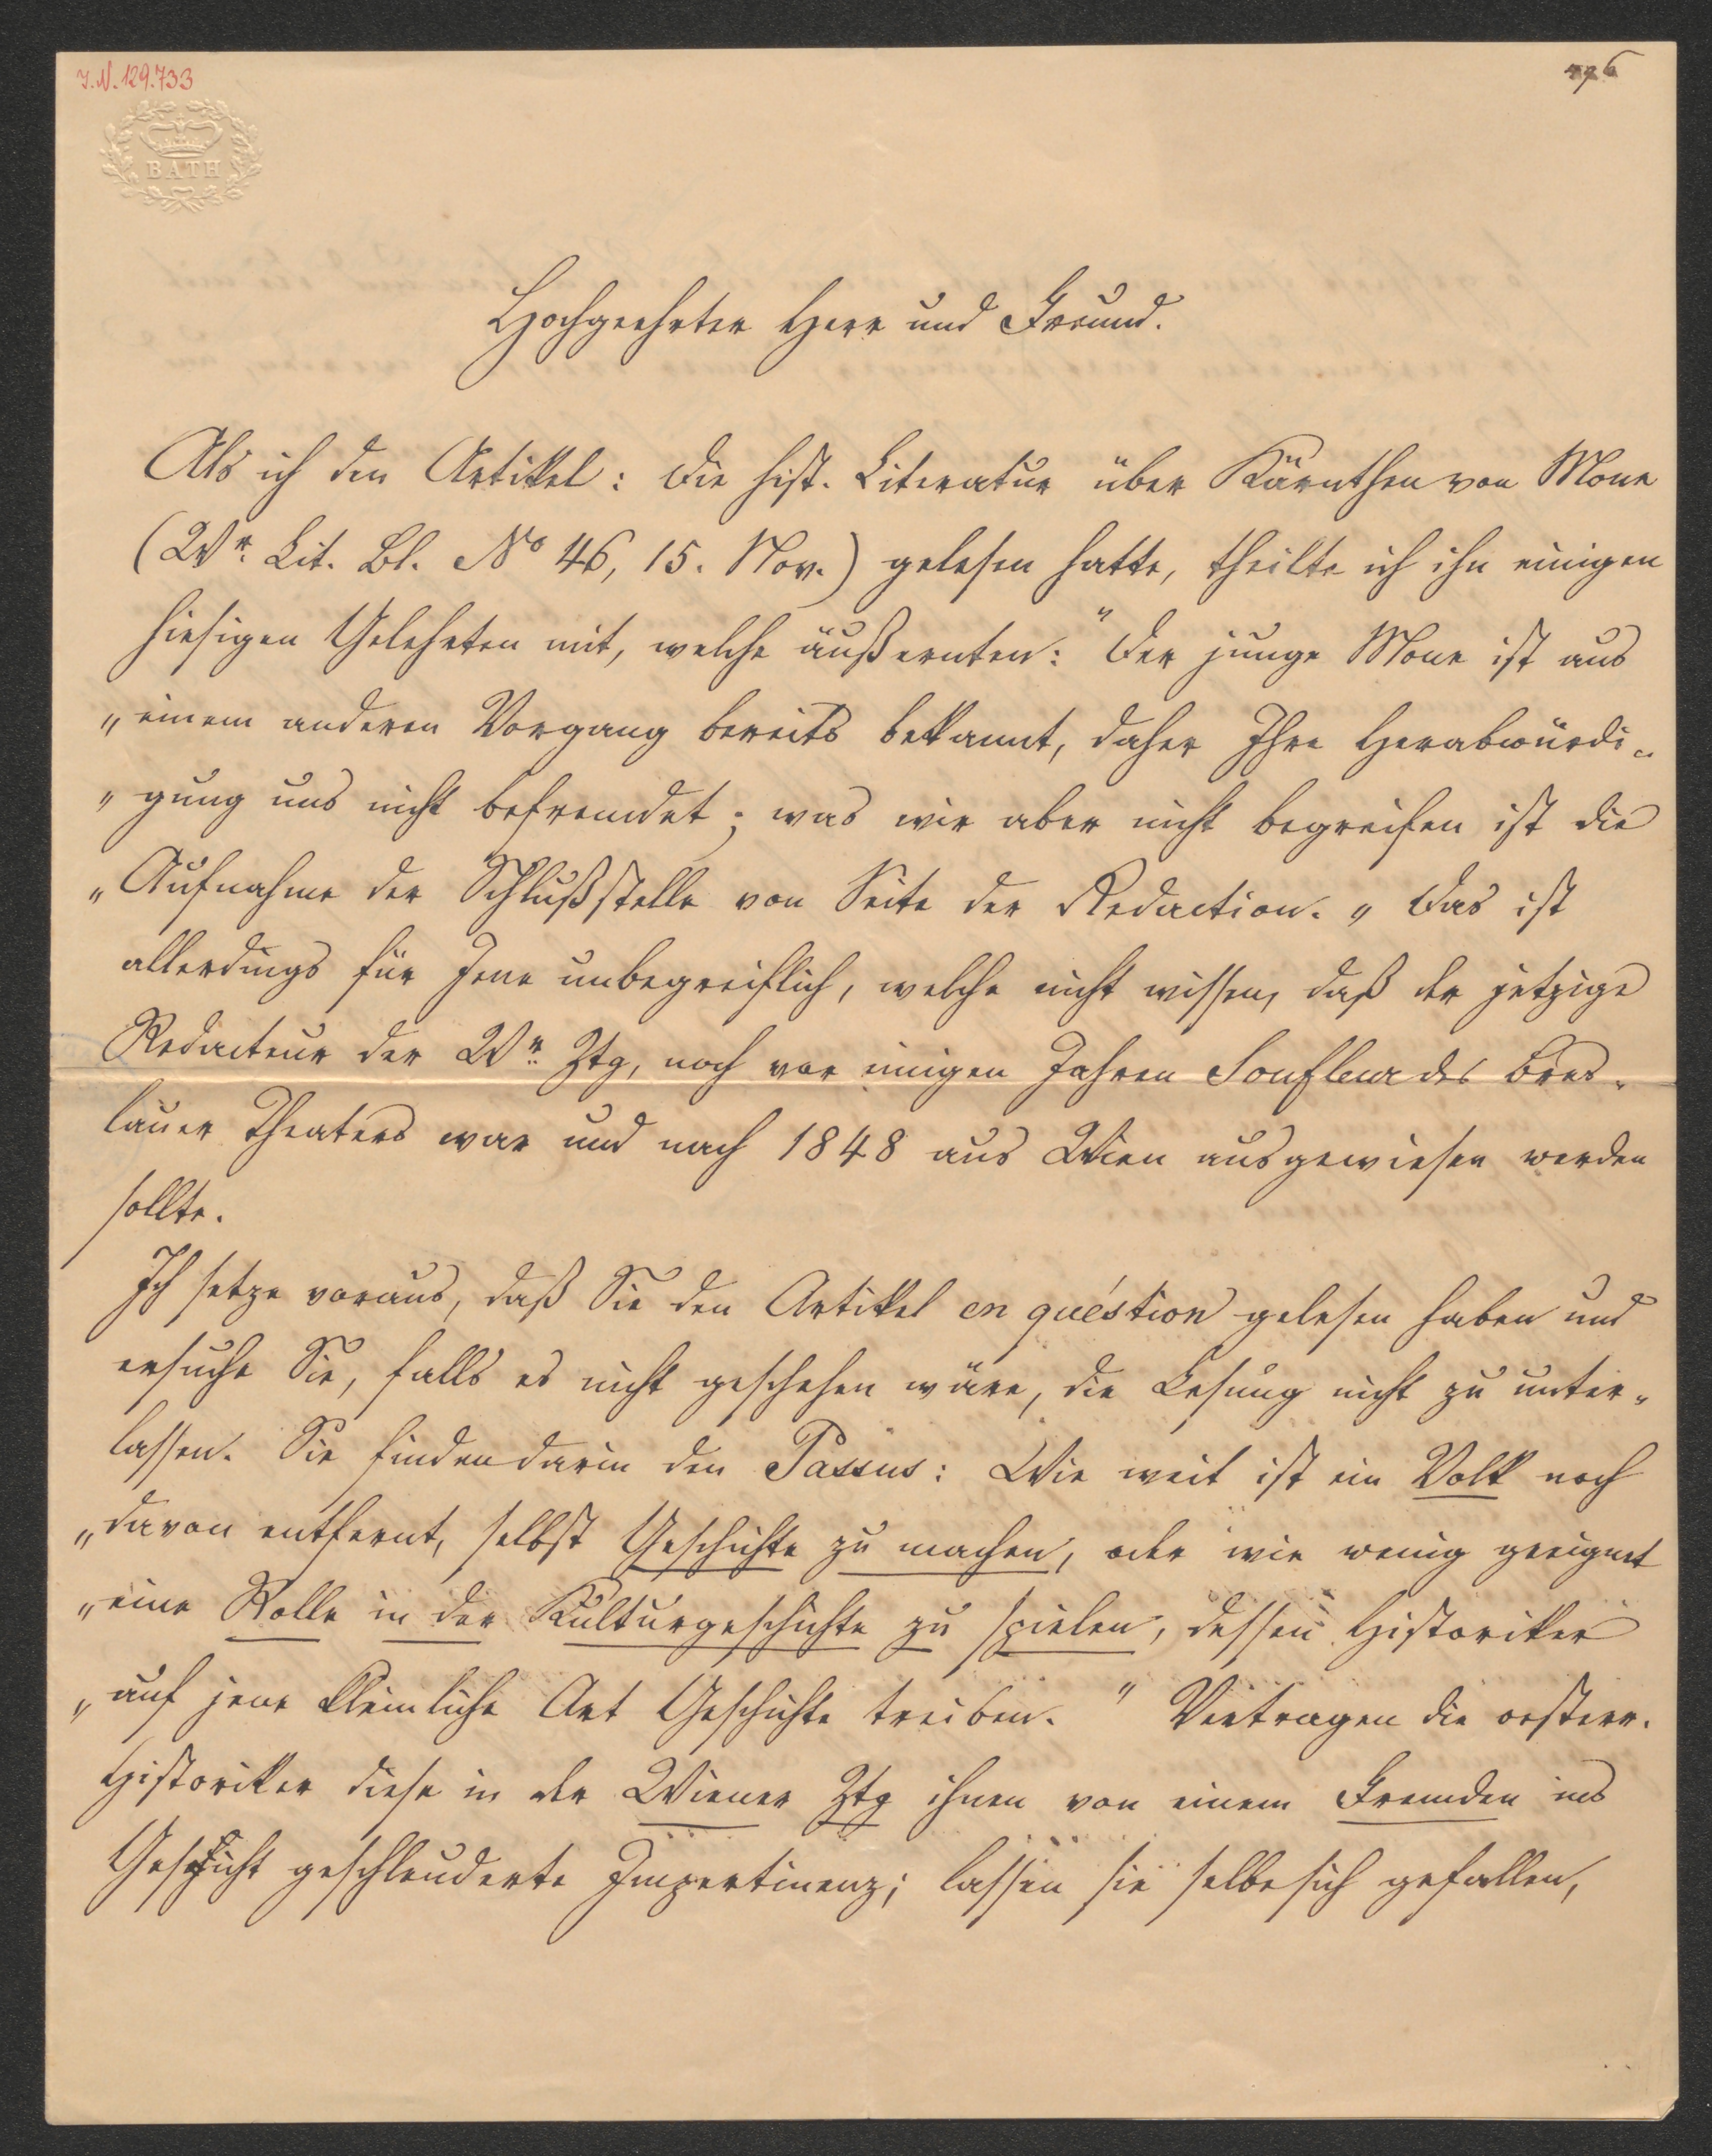 I.N. 129.733
476
BATH
Hochgeehrter Herr und Freund.
Als ich den Artikel: Die hist. Literatur über Kärnthen von Mone
(Wr. Lit. Bl. No 46, 15. Nov.) gelesen hatte, theilte ich ihn einigen
hiesigen Gelehrten mit, welche äußernten: "Der junge Mone ist aus
"einem anderen Vorgang bereits bekannt, daher Ihre Herabwürdi-
"gung uns nicht befremdet; was wir aber nicht begreifen ist die
"Aufnahme der Schlußstelle von Seite der Redaction." Das ist
allerdings für Jene unbegreiflich, welche nicht wissen, daß der jetzige
Redacteur der Wr. Ztg, noch vor einigen Jahren Soufleur des Bres-
lauer Theaters war und nach 1848 aus Wien ausgewiesen werden
sollte.
Ich setze voraus, daß Sie den Artikel en quéstion gelesen haben und
ersuche Sie, falls es nicht geschehen wäre, die Lesung nicht zu unter-
lassen. Sie finden darin den Passus: Wie weit ist ein Volk noch
"davon entfernt, selbst Geschichte zu machen, oder wie wenig geeignet
"eine Rolle in der Kulturgeschichte zu spielen, dessen Historiker
"auf jene kleinliche Art Geschichte treiben." Vertragen die oesterr.
Historiker diese in der Wiener Ztg ihnen von einem Fremden ins
Gesicht geschleuderte Impertinenz; lassen sie selbe sich gefallen,